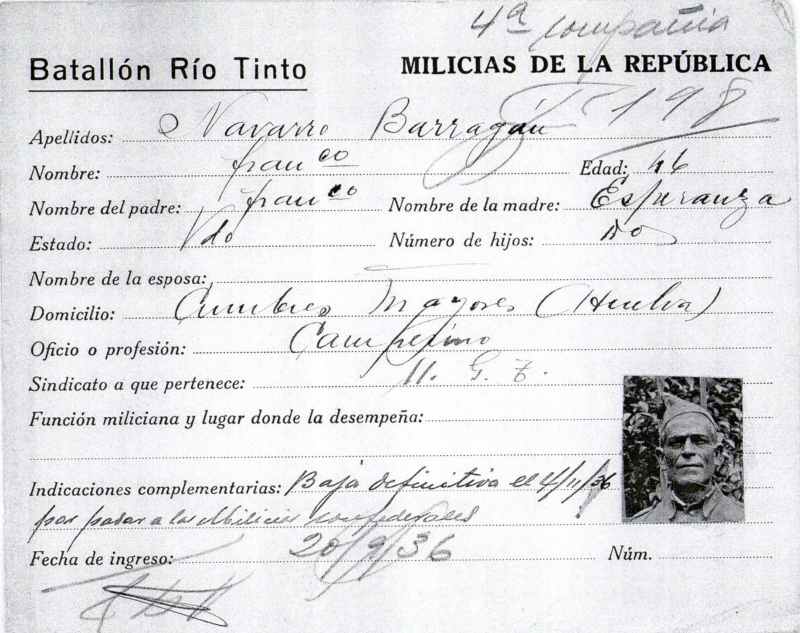 4ª compañia
Batallón Río Tinto MILICIAS DE LA REPÚBLICA
198
Apellidos: Navarro Barragán
Nombre: franco Edad: 46
Nombre del padre: franco Nombre de la madre: Esperanza
Estado: Vdo Número de hijos: no
Nombre de la esposa:
Domicilio: Cumbres Mayores (Huelva)
Oficio o profesión: Campesino
Sindicato a que pertenece: U. G. T.
Función miliciana y lugar donde la desempeña:
Indicaciones complementarias: Baja definitiva el 4/11/36
por pasar a las Milicias confederales
Fecha de ingreso: 20/9/36 Núm.